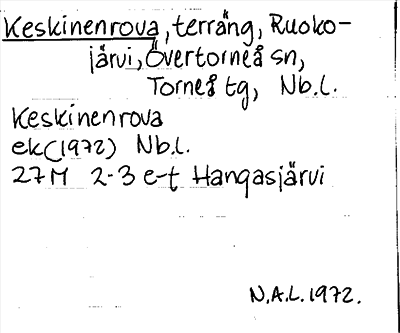 Keskinenrova, terräng, Ruoko-
järvi, Övertorneå sn,
Torneå tg, Nb.l.
Keskinenrova
ek(1972) Nb.l.
27M 2-3 e-f Hangasjärvi
N.A.L. 1972.